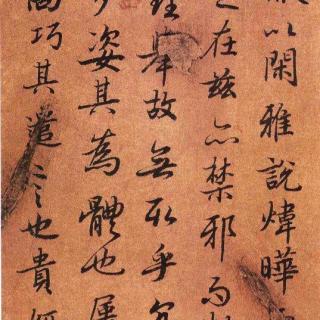 以閑雅說煒曄
之在茲亦禁邪而
理舉故無取乎
姿其為體也屢
尚巧其遣言也貴